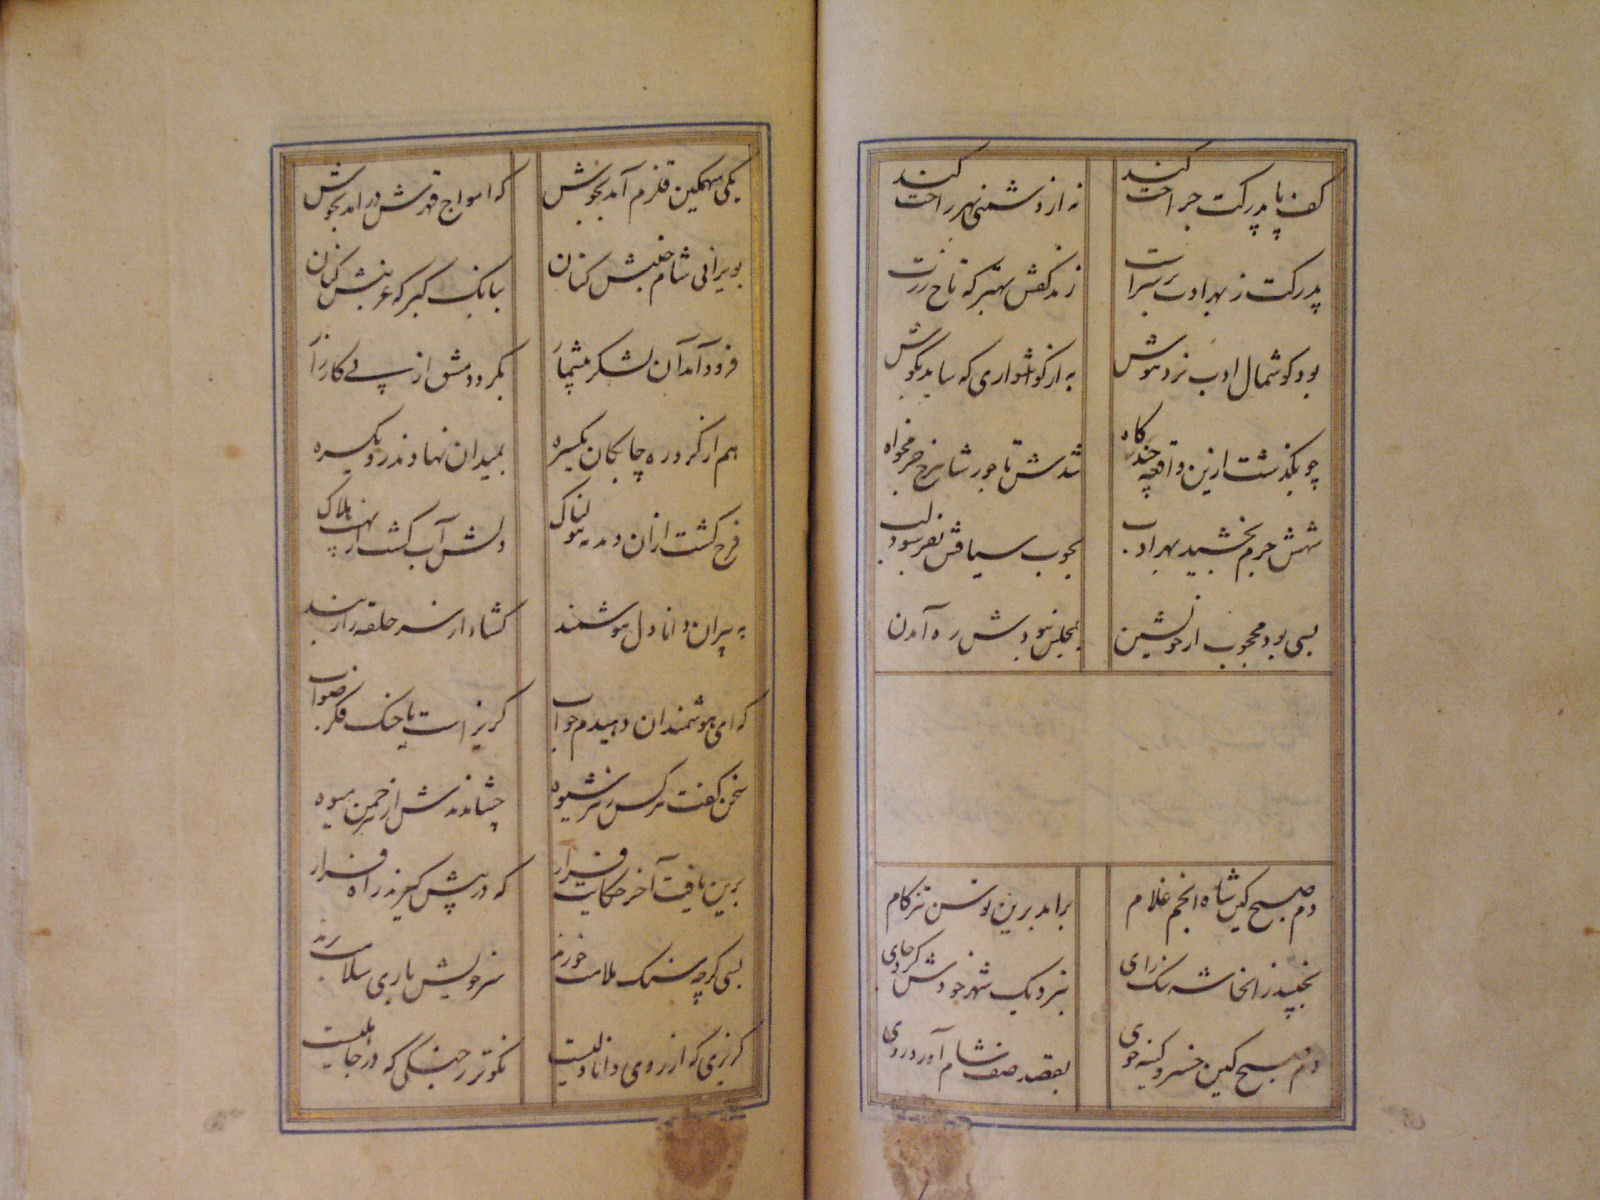 کف پا پدرکت جراحت کند نه از دشمنی بهر راحت کند
پدرکت ز بهر ادب بر سرت زند کفش بهتر که تاج زرت
بود گوشمال ادب نزد هوش به از گوشواری که ساید بگوش
چو بگذشت ازین واقعه چندگاه شدش
شهش جرم بخشید بهر ادب
بسی بود محجوب از خویشتن بمجلس نبودش ره آمدن
دم صبح کین شاه انجم غلام براید برین توسن تیزکام
بنزدیک شهر خودش کرد جای
دم صبح کین خسرو کینه جوی بقصد صف شام آورد روی
یکی سهمگین قلزم آمد بجوش که امواج قهرش درامد بجوش
بویرانی شام جنبش کنان ببانک کبرکه غرنبش کنان
فرود آمد آن لشکر بیشمار بکرد دمشق از پی کارزار
هم از کرد ره چابکان یکسره بمیدان نهادند رو یکسره
فرح کشت ازان دمدمه هولناک دلش آب کشت از نهیب هلاک
به پیران دانا دل هوشمند کشاد از سر حلقه راز بند
که ای هوشمندان دهیدم جواب کریز است یا جنک فکر صواب
سخن کفت هر کس بهر شیوه چشاندندش از خمن میوه
برین یافت آخر حکایت قرار که در پیش کیرند راه فرار
بسی کرچه سنک ملامت خورند سر خویش باری سلامت برند
کریزی که از روی دانا دلیست نکوتر ز جنکی که در جاهلیست